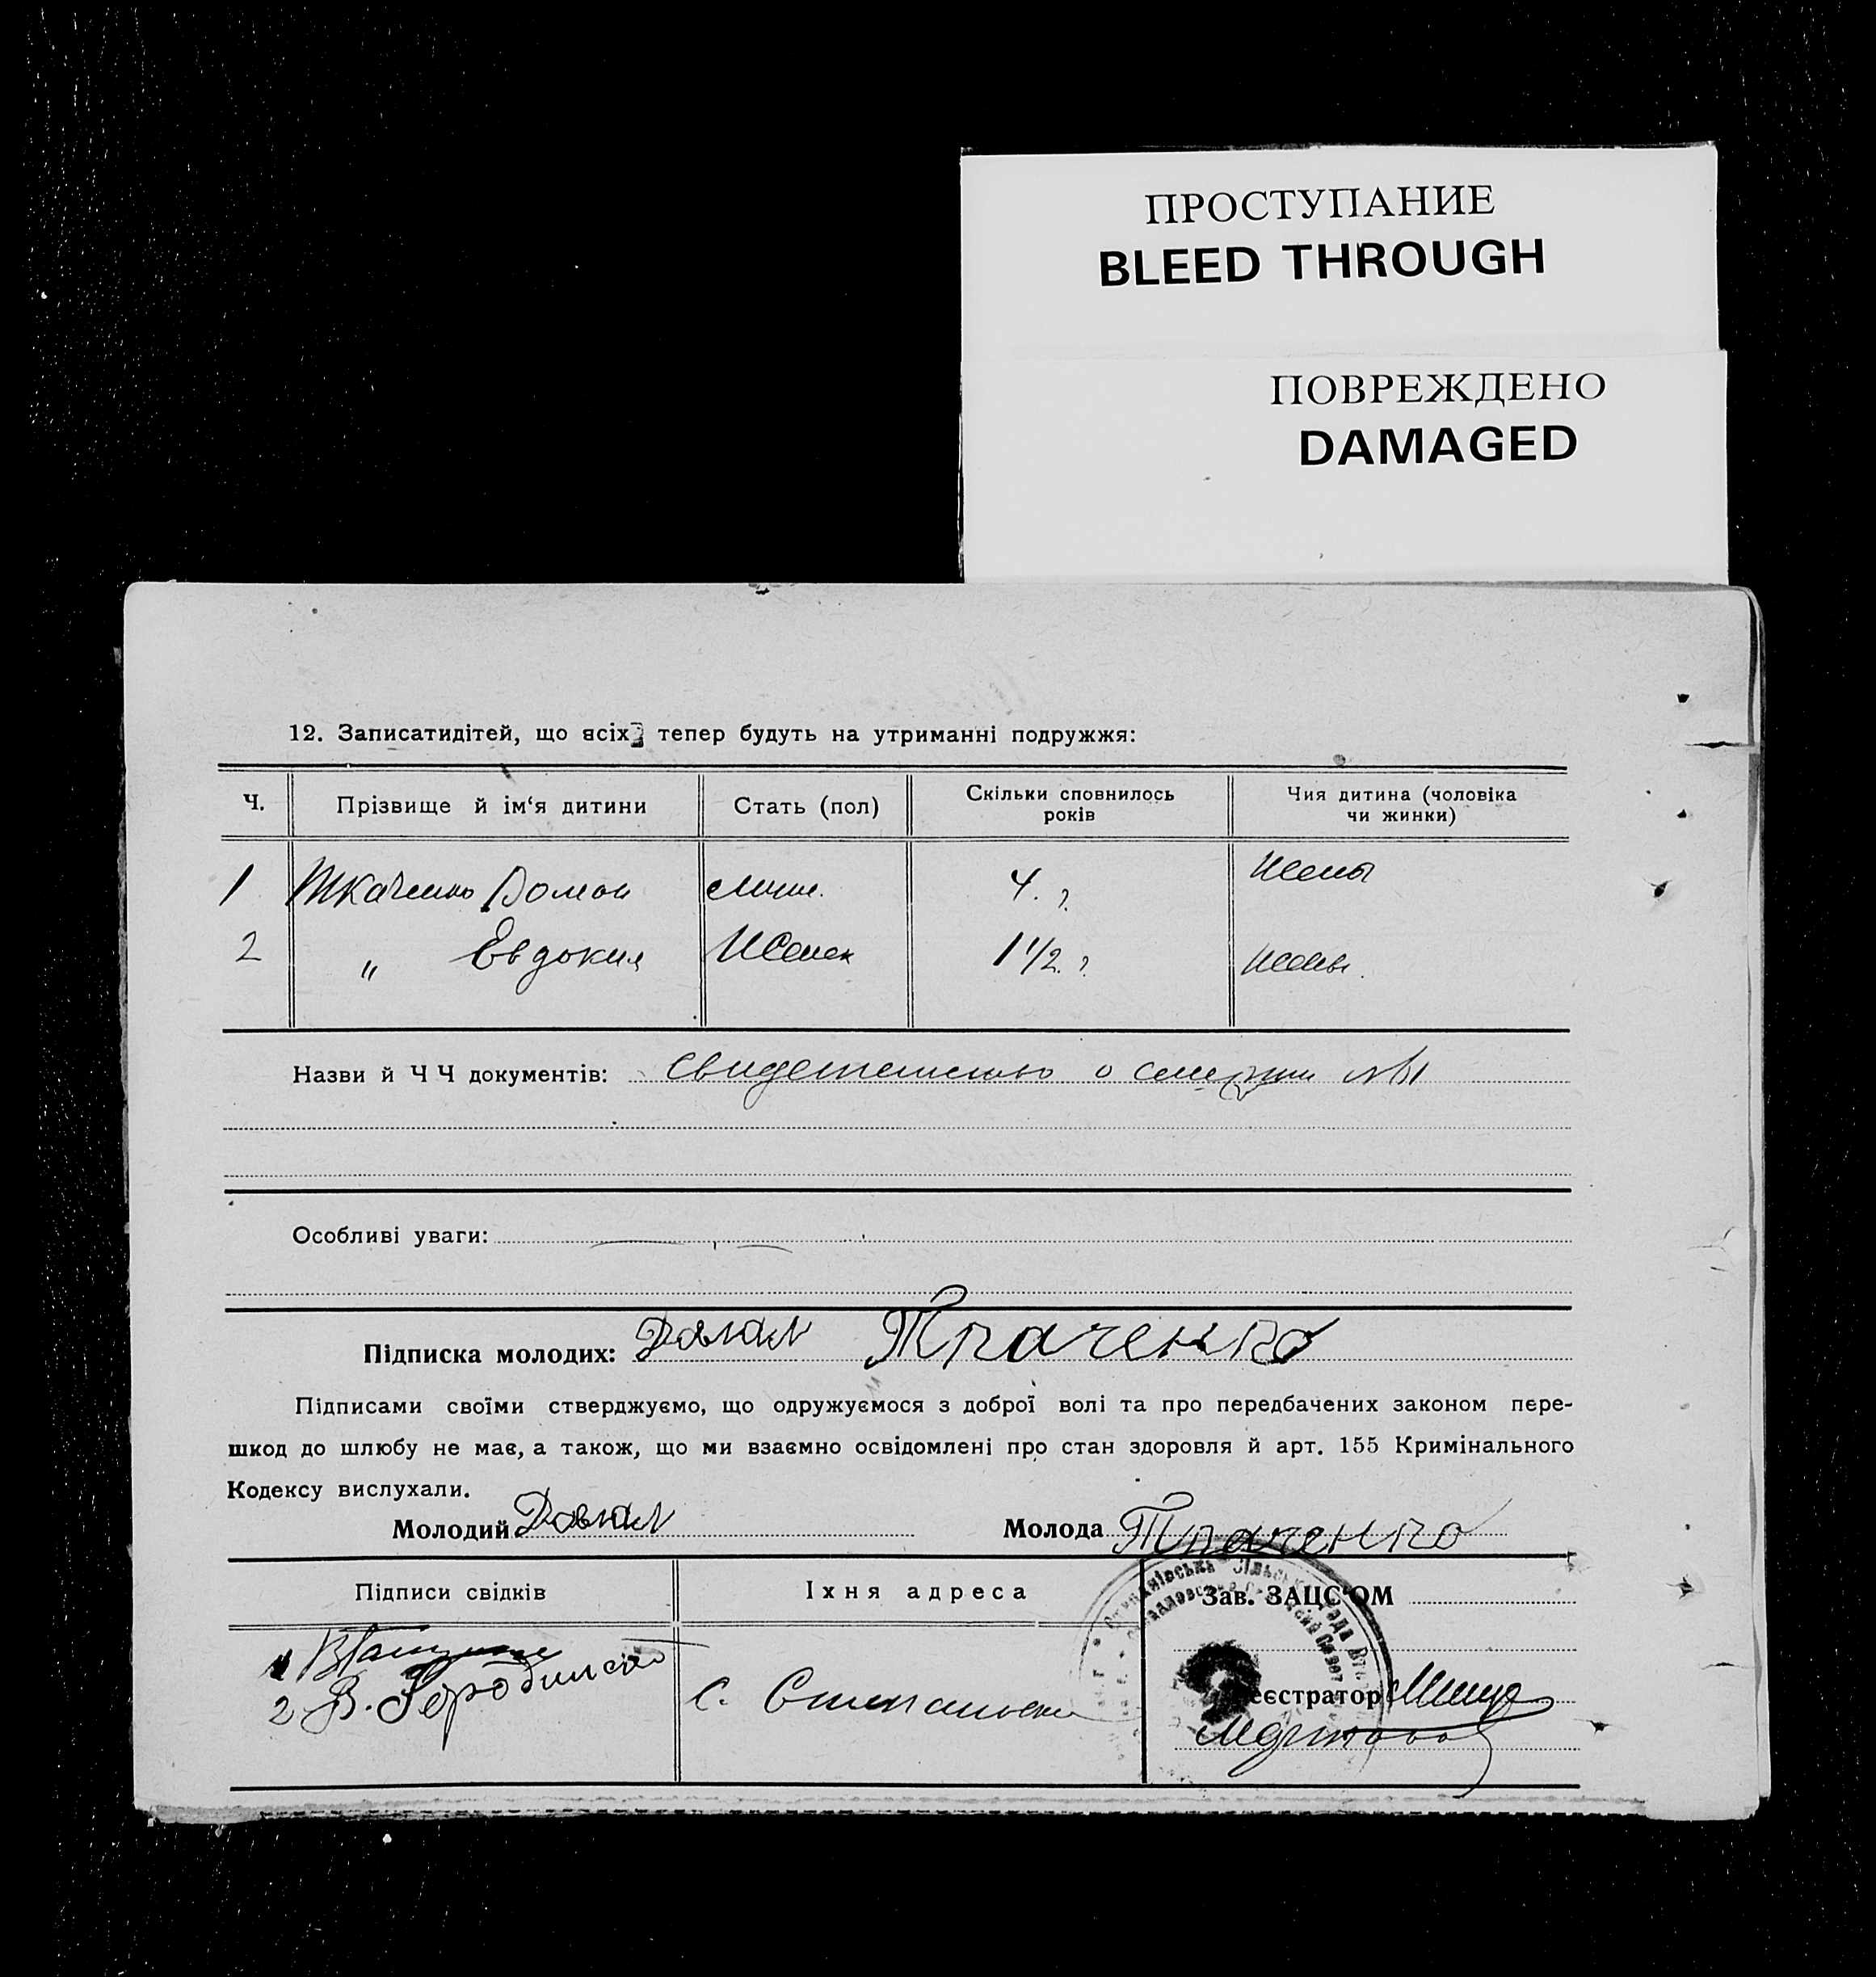 ПРОСТУПАНИЕ
BLEED THROUGH
ПОВРЕЖДЕНО
DAMAGED
12. Записатидітей, що всіх тепер будуть на утриманні подружжя:
Ч. Прізвище й ім‘я дитини Стать (пол) Скільки сповнилось років Чия дитина (чоловіка чи жинки)
1 Ткаченко Роман муж. 4. г. Жены
2 " Евдокия Женск 1 1/2. г. жены.
Назви й Ч Ч документів: свидетельство о смерти №1
Особливі уваги:
Підписка молодих: Ткаченко
Підписами своїми стверджуємо, що одружуємося з доброї волі та про передбачених законом пере-
шкод до шлюбу не має, а також, що ми взаємно освідомлені про стан здоровля й арт. 155 Кримінального
Кодексу вислухали.
Молодий Молода Ткаченко
Підписи свідків Їхня адреса Зав. ЗАЦС‘ОМ
1
2 В. с.
еєстратор